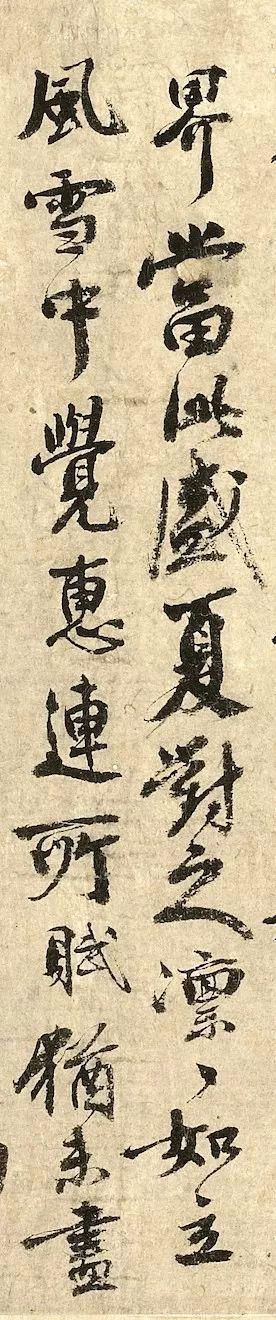 界當此盛夏對之凛〻如立
風雪中覺惠連所賦猶未盡